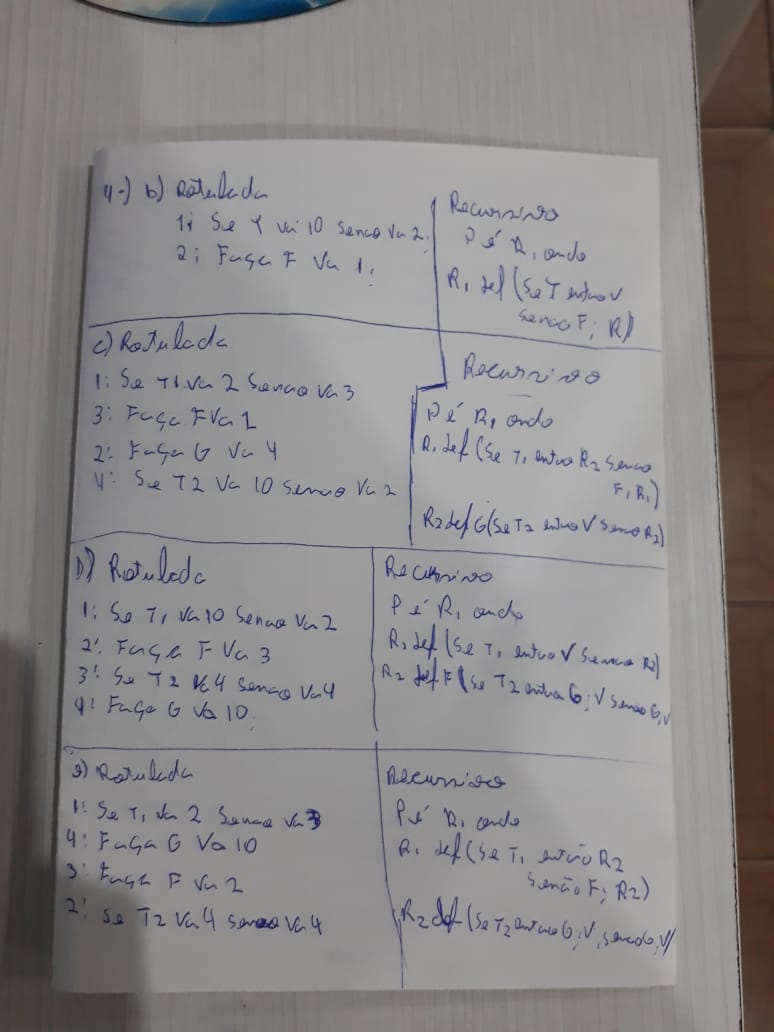 4-) b) Rotulada
1: Se T Va 10 Senao Va 2;
2: Faça F Va 1;
Recursivo
P é R, onde
R, def (Se T entao V
senao F; R)
c) Rotulada
1: Se T1 Va 2 Senao Va 3
3: Faça F Va 1
2: Faça G Va 4
4: Se T2 Va 10 Senao Va 2
Recursivo
P é R, onde
R, def (Se T, entao R2 Senao
F, R,)
R2 def G (Se T2 entao V Senao R2)
D) Rotulada
1: Se T, Va 10 Senao Va 2
2: Faça F Va 3
3: Se T2 Va 4 Senao Va 4
4: Faça G Va 10;
Recursivo
P é R, onde
R, def (Se T, entao V Senao R2)
R2 def F (Se T2 entao G; V senao G, V
Rotulada
1: Se T, Va 2 Senao Va 3
4: Faça G Va 10
3: Faça F Va 2
2: Se T2 Va 4 senao Va 4
Recursivo
P é R, onde
R, def (Se T, então R2
Senão F; R2)
R2 def (Se T2 entao G; V, senao G; V)